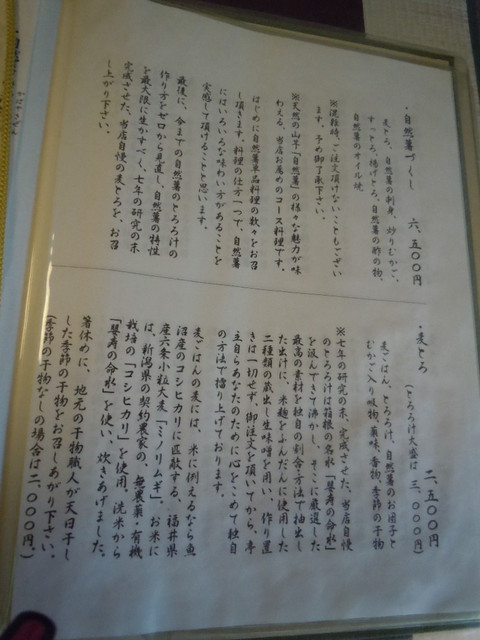 ・自然薯づくし　六、五〇〇円
麦とろ、自然薯の刺身、炒りむかご、
すっとろ、揚げとろ、自然薯の酢の物、
自然薯のオイル焼
※混雑時、ご注文頂けないこともござい
ます。予め御了承下さい。
※天然の山芋「自然薯」の様々な魅力が味
わえる、当店お薦めのコース料理です。
はじめに自然薯単品料理の数々をお召
し頂きます。料理の仕方一つで、自然薯
にはいろいろな味わい方があることを
実感して頂けることと思います。
最後に、今までの自然薯のとろろ汁の
作り方をゼロから見直し、自然薯の特性
を最大限に生かすべく、七年の研究の末
完成させた、当店自慢の麦とろを、お召
し上がり下さい。
・麦とろ　二、五〇〇円
（とろろ汁大盛は　三、〇〇〇円）
麦ごはん、とろろ汁、自然薯のお団子と
むかご入り吸物、薬味、香物、季節の干物
※七年の研究の末、完成させた、当店自慢
のとろろ汁は箱根の名水「嬰寿の命水」
を汲んできて沸かし、そこに厳選した
最高の素材を独自の割合・方法で抽出し
た出汁に、米麹をふんだんに使用した
二種類の蔵出し生味噌を用い、作り置
きは一切せず、御注文を頂いてから、亭
主自らあなたのために心をこめて独自
の方法で擂り上げております。
麦ごはんの麦には、米に例えるなら魚
沼産のコシヒカリに匹敵する、福井県
産六条小粒大麦「ミノリムギ」、お米に
は、新潟県の契約農家の、無農薬・有機
栽培の「コシヒカリ」を使用、洗米から
「嬰寿の命水」を使い、炊きあげました。
箸休めに、地元の干物職人が天日干し
した季節の干物をお召しあがり下さい。
（季節の干物なしの場合は二、〇〇〇円。）